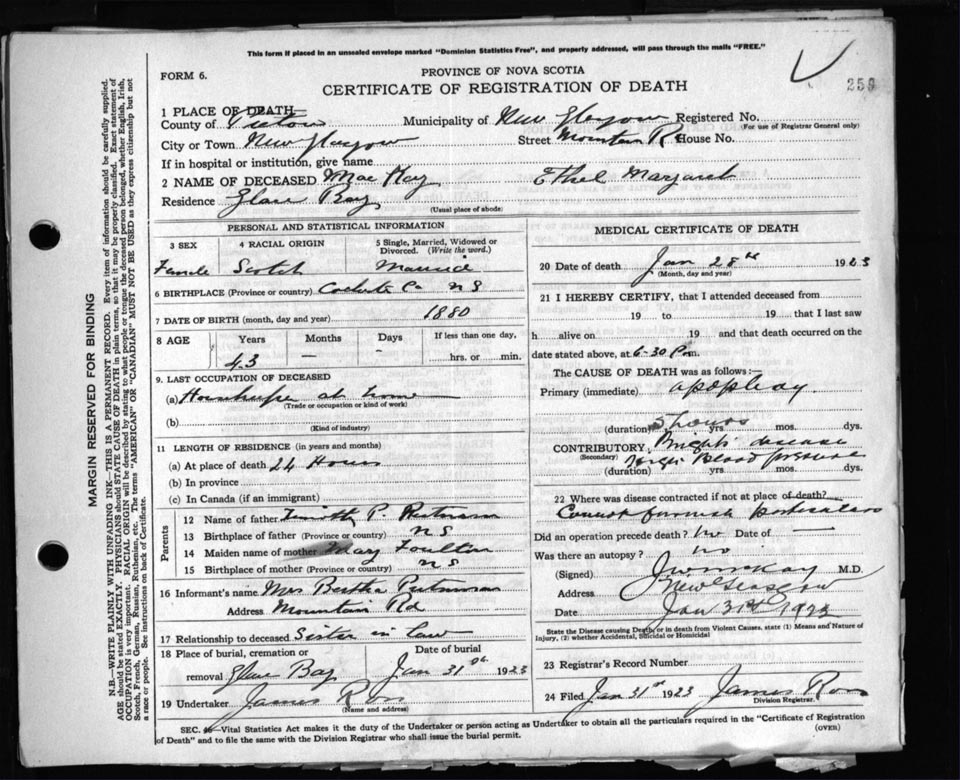 This form if placed in an unsealed envelope marked "Dominion Statistics Free", and properly addressed, will pass through the mails "FREE."
FORM 6.
PROVINCE OF NOVA SCOTIA
CERTIFICATE OF REGISTRATION OF DEATH
259
1 PLACE OF DEATH—
County of Pictou Municipality of New Glasgow Registered No.
(For use of Registrar General only)
City or Town New Glasgow Street Mountain Rd House No.
If in hospital or institution, give name
2 NAME OF DECEASED Mac Kay Ethel Margaret
Residence Glace Bay
(Usual place of abode)
PERSONAL AND STATISTICAL INFORMATION
3 SEX 4 RACIAL ORIGIN 5 Single, Married, Widowed or Divorced. (Write the word.)
Female Scotch Married
6 BIRTHPLACE (Province or country) Colchester Co N S
7 DATE OF BIRTH (month, day and year) 1880
8 AGE Years Months Days If less than one day,
43 — — hrs. or min.
9. LAST OCCUPATION OF DECEASED
(a) Housekeeper at home
(Trade or occupation or kind of work)
(b)
(Kind of industry)
11 LENGTH OF RESIDENCE (in years and months)
(a) At place of death 24 Hours
(b) In province
(c) In Canada (if an immigrant)
Parents
12 Name of father Timothy P.
13 Birthplace of father (Province or country) N S
14 Maiden name of mother Mary Foulton
15 Birthplace of mother (Province or country) N S
16 Informant's name Mrs Bertha Putnam
Address Mountain Rd
17 Relationship to deceased Sister in law
18 Place of burial, cremation or removal Glace Bay Date of burial Jan 31st 1923
19 Undertaker James Ross
(Name and address)
MEDICAL CERTIFICATE OF DEATH
20 Date of death Jan 28th 1923
(Month, day and year)
21 I HEREBY CERTIFY, that I attended deceased from
19 to 19 that I last saw
h alive on 19 and that death occurred on
date stated above, at 6-30 P.m.
The CAUSE OF DEATH was as follows:—
Primary (immediate) apoplexy
(duration) 5 hours yrs. mos. dys.
CONTRIBUTORY Brights disease
(Secondary) Blood pressure
(duration) yrs. mos. dys.
22 Where was disease contracted if not at place of death?
Cannot furnish particulars
Did an operation precede death? no Date of —
Was there an autopsy? no
(Signed) J W McKay M.D.
Address New Glasgow
Date Jan 31st 1923
State the Disease causing Death, or in death from Violent Causes, state (1) Means and Nature of Injury, (2) whether Accidental, Suicidal or Homicidal
23 Registrar's Record Number
24 Filed Jan 31st 1923 James Ross
Division Registrar.
SEC. 46—Vital Statistics Act makes it the duty of the Undertaker or person acting as Undertaker to obtain all the particulars required in the "Certificate of Registration
of Death" and to file the same with the Division Registrar who shall issue the burial permit.
(OVER)
MARGIN RESERVED FOR BINDING
N.B.—WRITE PLAINLY WITH UNFADING INK—THIS IS A PERMANENT RECORD. Every item of information should be carefully supplied.
AGE should be stated EXACTLY. PHYSICIANS should STATE CAUSE OF DEATH in plain terms, so that it may be properly classified. Exact statement of
OCCUPATION is very important. RACIAL ORIGIN will be described by stating to what people or tongue the deceased person belonged, whether English, Irish,
Scotch, French, German, Russian, Ruthenian, etc. The terms "AMERICAN" or "CANADIAN" MUST NOT BE USED as they express citizenship but not
a race or people. See instructions on back of Certificate.